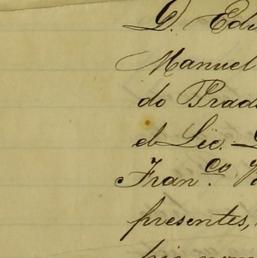 D. Edu
Manuel
do Prad
el Lic.
Fran.co
presentes,